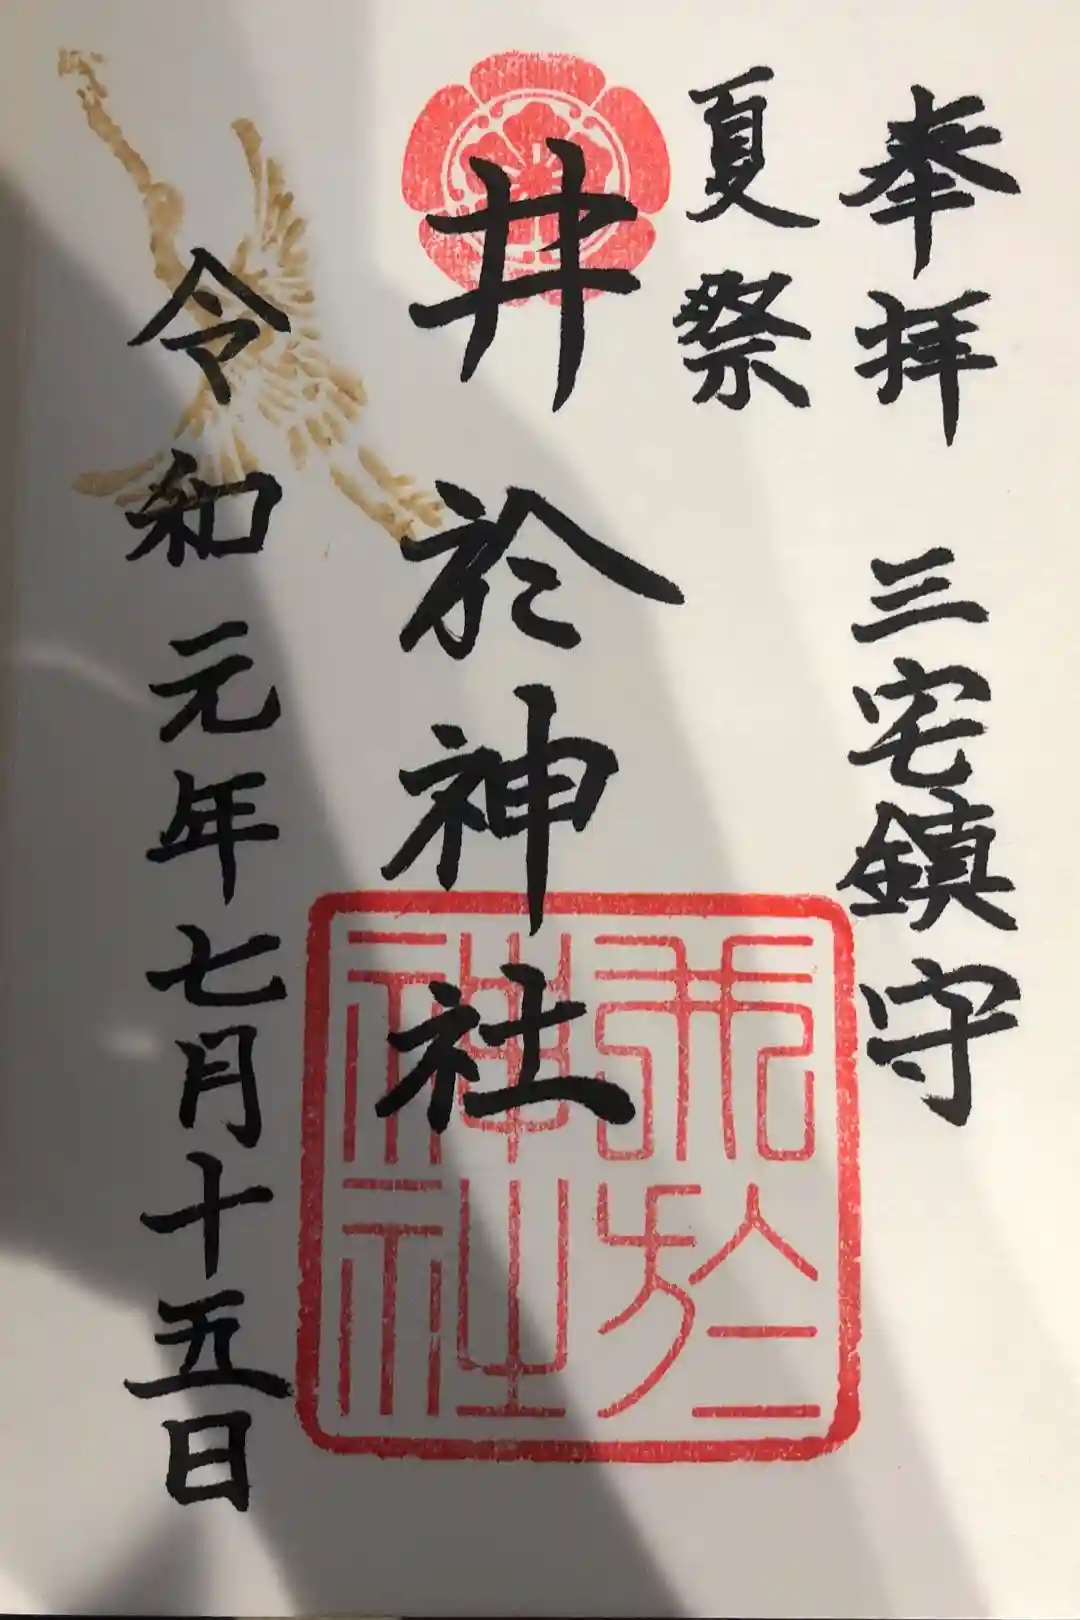 奉拝 三宅鎮守
夏祭
井於神社
令和元年七月十五日